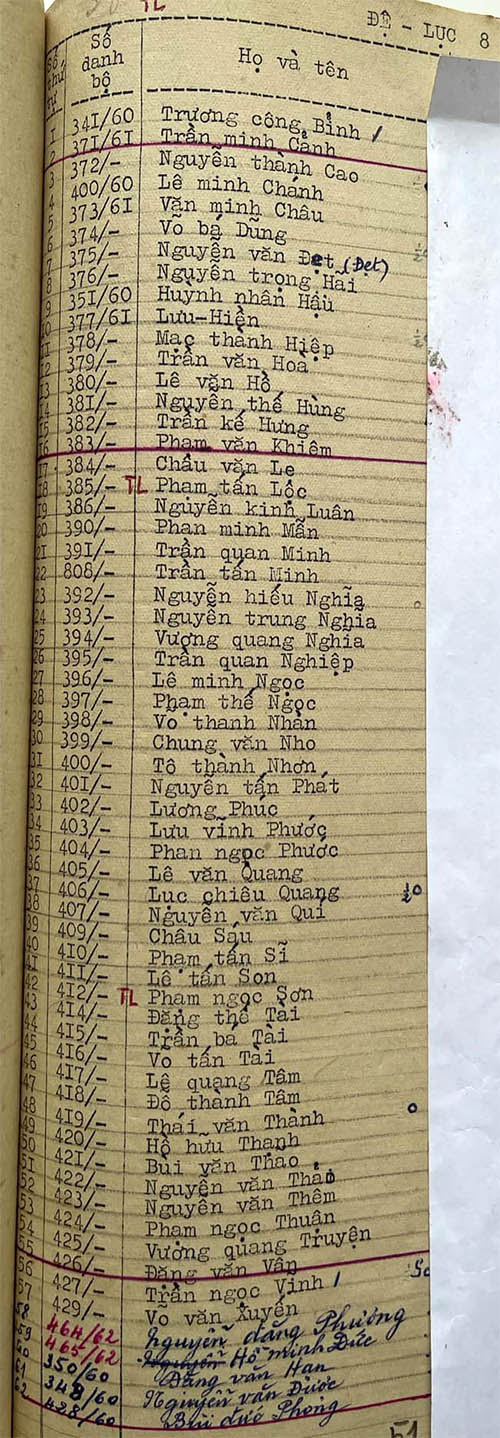 TL
ĐỆ - LỤC 8
Số thứ tự Số danh bộ Họ và tên
1 341/60 Trương công Bỉnh /
2 371/61 Trần minh Cảnh
3 372/- Nguyễn thành Cao
4 400/60 Lê minh Chánh
5 373/61 Văn minh Châu
6 374/- Võ bá Dũng
7 375/- Nguyễn văn Đẹt (Đẹt)
8 376/- Nguyễn trọng Hải
9 351/60 Huỳnh nhân Hậu
10 377/61 Lưu-Hiền
11 378/- Mạc thành Hiệp
12 379/- Trần văn Hoà
13 380/- Lê văn Hồ
14 381/- Nguyễn thế Hùng
15 382/- Trần kế Hưng
16 383/- Phạm văn Khiêm
17 384/- Châu văn Le
18 385/- TL Phạm tấn Lộc
19 386/- Nguyễn kinh Luân
20 390/- Phan minh Mẫn
21 391/- Trần quan Minh
22 808/- Trần tấn Minh
23 392/- Nguyễn hiếu Nghĩa
24 393/- Nguyễn trung Nghĩa
25 394/- Vương quang Nghĩa
26 395/- Trần quan Nghiệp
27 396/- Lê minh Ngọc
28 397/- Phạm thế Ngọc
29 398/- Võ thanh Nhàn
30 399/- Chung văn Nho
31 400/- Tô thành Nhơn
32 401/- Nguyễn tấn Phát
33 402/- Lương Phúc
34 403/- Lưu vĩnh Phước
35 404/- Phan ngọc Phước
36 405/- Lê văn Quang
37 406/- Lục chiêu Quang ½0
38 407/- Nguyễn văn Quí
39 409/- Châu Sáu
40 410/- Phạm tấn Sĩ
41 411/- Lê tấn Son
42 412/- TL Phạm ngọc Sơn
43 414/- Đặng thế Tài
44 415/- Trần bá Tài
45 416/- Võ tấn Tài
46 417/- Lê quang Tâm
47 418/- Đỗ thành Tâm
48 419/- Thái văn Thành 0
49 420/- Hồ hữu Thạnh
50 421/- Bùi văn Thảo
51 422/- Nguyễn văn Thảo
52 423/- Nguyễn văn Thêm
53 424/- Phạm ngọc Thuận
54 425/- Vương quang Truyện
55 426/- Đặng văn Vân
56 427/- Trần ngọc Vinh /
57 429/- Võ văn Xuyến
58 464/62 Nguyễn đăng Phương
59 465/62 Nguyễn Hồ minh Đức
60 350/60 Đặng văn Han
61 348/60 Nguyễn văn Được
62 428/60 Bùi đước Phong
51